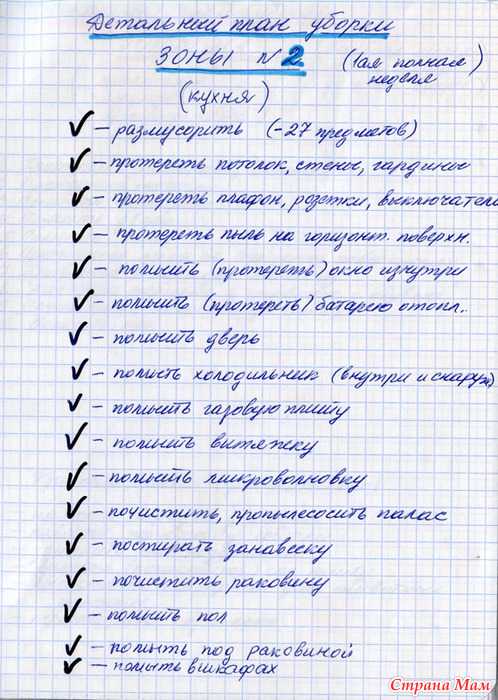 Детальный план уборки
зоны № 2 (1ая полная
неделя)
(кухня)
✓ – размусорить (-27 предметов)
✓ – протереть потолок, стены, гардины
✓ – протереть плафон, розетки, выключатели
✓ – протереть пыль на горизонт. поверхн.
✓ – помыть (протереть) окно изнутри
✓ – помыть (протереть) батарею отопл.
✓ – помыть дверь
✓ – помыть холодильник (внутри и снаруж)
✓ – помыть газовую плиту
✓ – помыть вытяжку
✓ – помыть микроволновку
✓ – почистить, пропылесосить палас
✓ – постирать занавеску
✓ – почистить раковину
✓ – помыть пол
✓ – помыть под раковиной
✓ – помыть в шкафах
Страна Мам